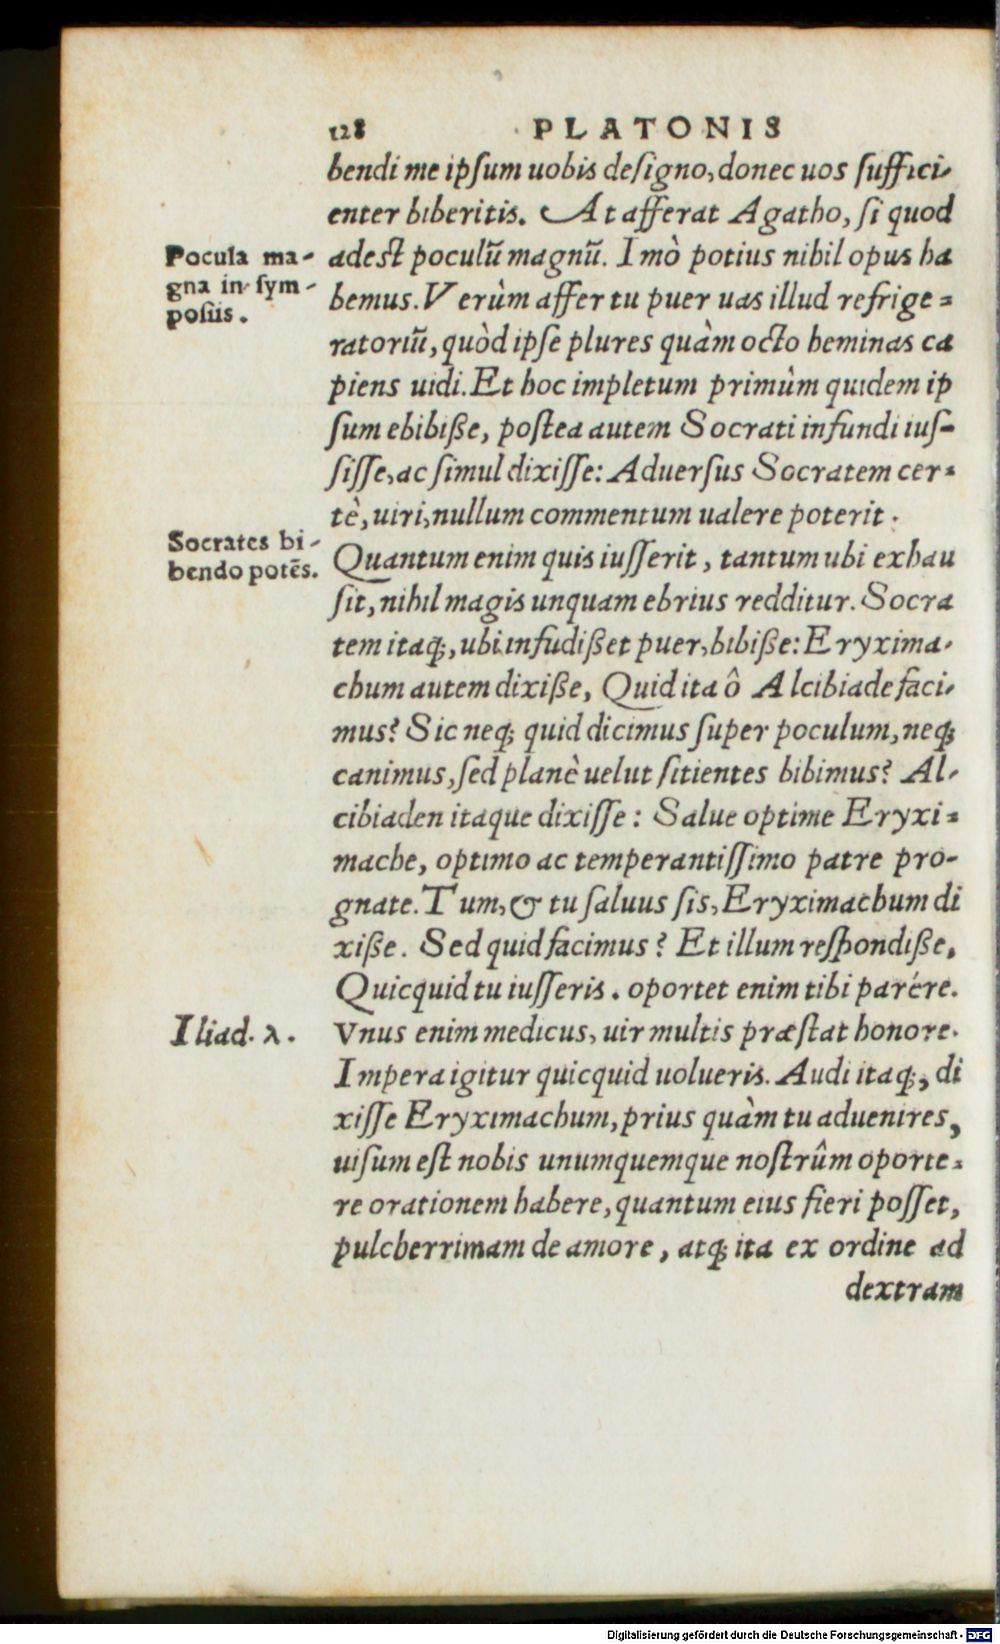 128 PLATONIS
bendi me ipſum uobis deſigno, donec uos ſuffici-
enter biberitis. At afferat Agatho, ſi quod
Pocula ma-
gna in ſym-
poſiis.
adeſt poculũ magnũ. Imò potius nihil opus ha
bemus. Verùm affer tu puer uas illud refrige-
ratoriũ, quòd ipſe plures quàm octo heminas ca
piens uidi. Et hoc impletum primùm quidem ip
ſum ebibiße, poſtea autem Socrati infundi iuſ-
ſiſſe, ac ſimul dixiſſe: Aduerſus Socratem cer-
tè, uiri, nullum commentum ualere poterit.
Socrates bi-
bendo potẽs.
Quantum enim quis iuſſerit, tantum ubi exhau
ſit, nihil magis unquam ebrius redditur. Socra
tem itaq;, ubi infudißet puer, bibiße: Eryxima-
chum autem dixiße, Quid ita ô Alcibiade faci-
mus? Sic neq; quid dicimus ſuper poculum, neq;
canimus, ſed planè uelut ſitientes bibimus? Al-
cibiaden itaque dixiſſe: Salue optime Eryxi-
mache, optimo ac temperantiſſimo patre pro-
gnate. Tum, & tu ſaluus ſis, Eryximachum di
xiße. Sed quid facimus? Et illum reſpondiße,
Quicquid tu iuſſeris. oportet enim tibi parére.
Iliad. λ.
Vnus enim medicus, uir multis præſtat honore.
Impera igitur quicquid uolueris. Audi itaq;, di
xiſſe Eryximachum, prius quàm tu aduenires,
uiſum eſt nobis unumquemque noſtrûm oporte-
re orationem habere, quantum eius fieri poſſet,
pulcherrimam de amore, atq; ita ex ordine ad
dextram
Digitalisierung gefördert durch die Deutsche Forschungsgemeinschaft - DFG